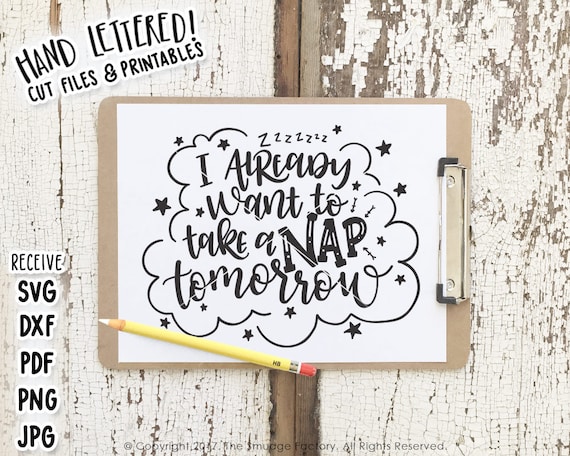 HAND LETTERED!
CUT FILES & PRINTABLES
Zzzzzzz
I ALREADY
want to
take a NAP
tomorrow
RECEIVE
SVG
DXF
PDF
PNG
JPG
HB
© Copyright 2017. The Smudge Factory. All Rights Reserved.